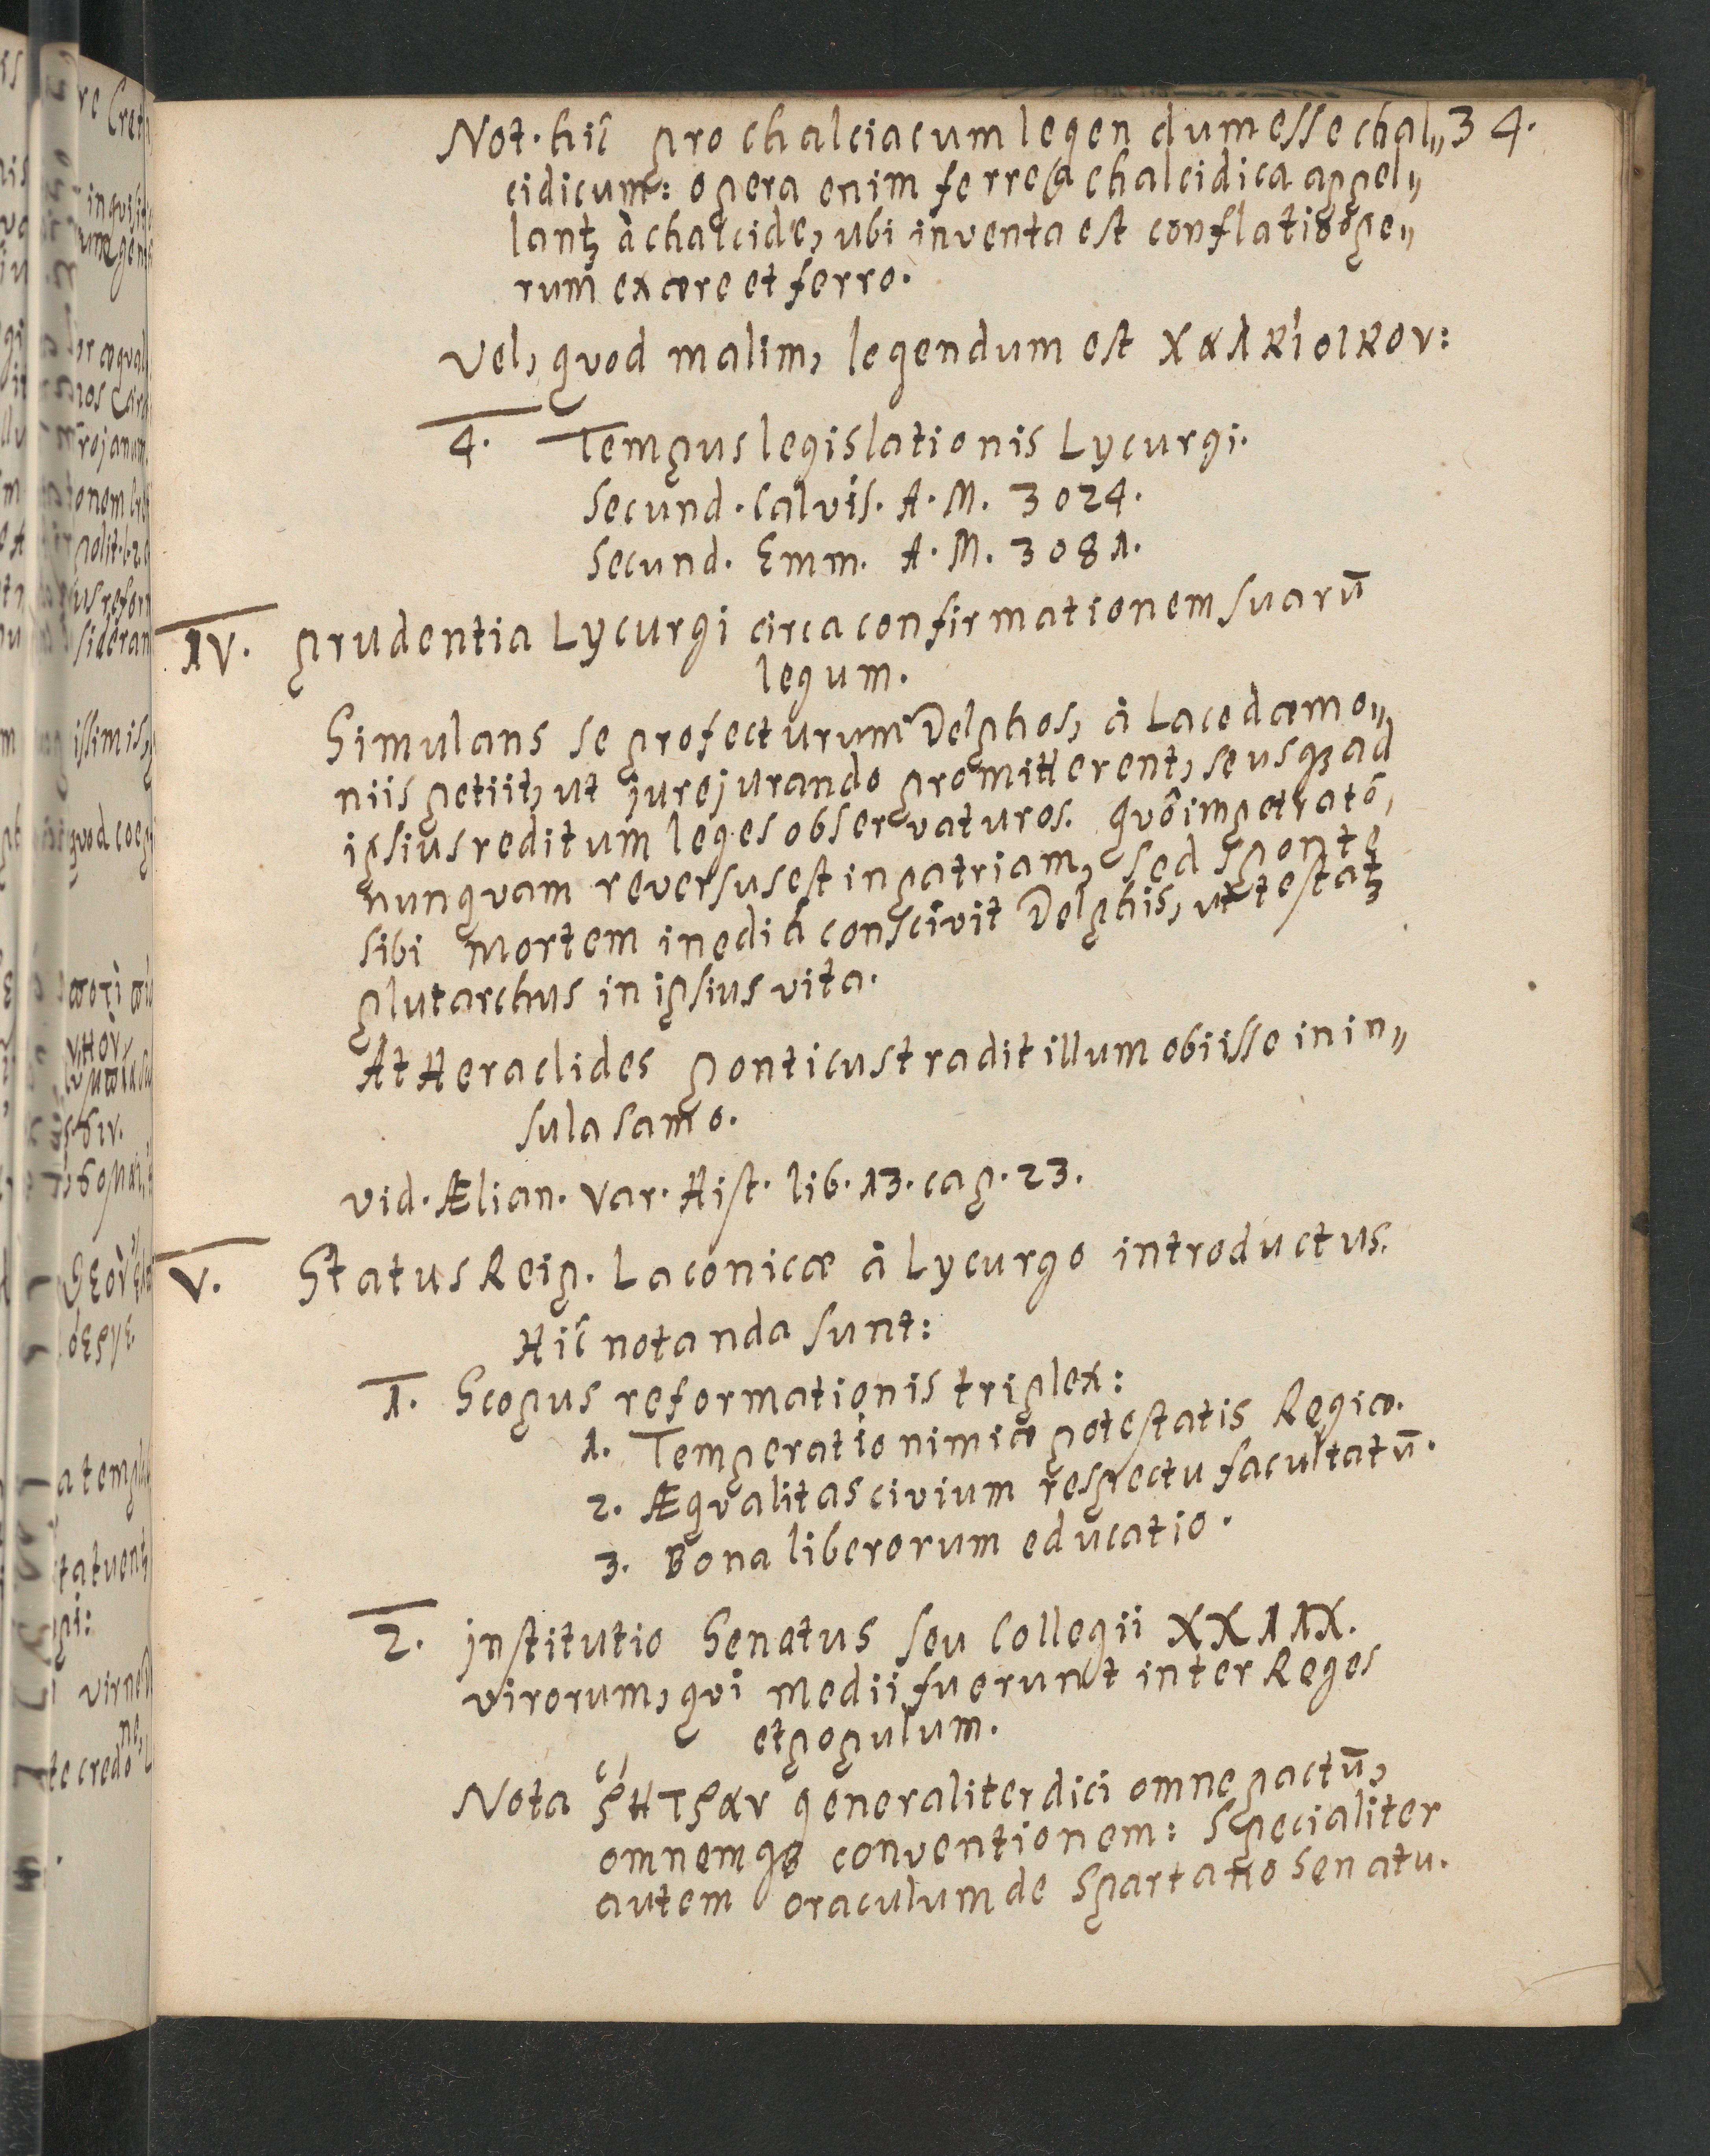 Not. hîc pro chalciacum legendum esse chal„ 34.
cidicum: opera enim ferrea chalcidica appel„
lantꝫ à chalcide, ubi inventa est conflatio ope„
rum ex ære et ferro.
Vel, qvod malim, legendum est χαλκίοικον:
4. Tempus legislationis Lycurgi.
Secund. Calvis. A. M. 3024.
Secund. Emm. A. M. 3081.
IV. Prudentia Lycurgi circa confirmationem suarū
legum.
Simulans se profecturum Delphos, â Lacedæmo„
niis petiit, ut jurejurando promitterent, se usqꝫ ad
ipsius reditum leges observaturos. Qvô impetratô,
nunqvam reversus est in patriam, sed sponte
sibi mortem inediâ conscivit Delphis, ut testatꝫ
Plutarchus in ipsius vita.
At Heraclides Ponticus tradit illum obiisse in in„
sula samo.
Vid. Ælian. Var. Hist. lib. 13. cap. 23.
V. Status Reip. Laconicæ â Lycurgo introductus.
Hîc notanda sunt:
1. Scopus reformationis triplex:
1. Temperatio nimiæ potestatis Regiæ.
2. Æqvalitas civium respectu facultatū.
3. Bona liberorum educatio.
2. Institutio Senatus seu Collegii XXIIX.
virorum, qvi medii fuerunt inter Reges
et populum.
Nota ῥήτραν generaliter dici omne pactū,
omnemqꝫ conventionem: Specialiter
autem oraculum de Spartano Senatu.